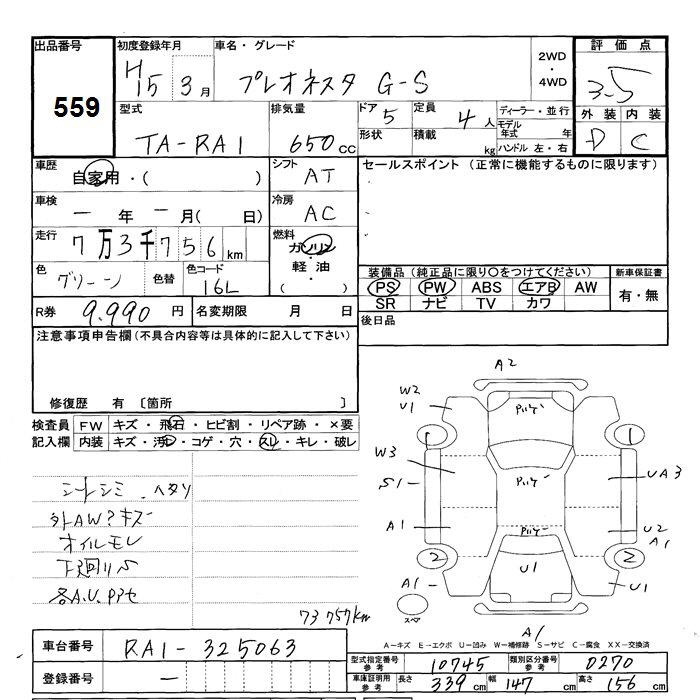 出品番号 初度登録年月 車名・グレード 評価点
559
H15 3月 プレオネスタ G-S 2WD ・ 4WD 3.5
型式 排気量 ドア 5 定員 4人 ディーラー・並行 外装 内装
TA-RA1 650cc 形状 積載 kg モデル年式 年 D C
ハンドル 左・右
車歴 自家用・( ) シフト AT セールスポイント (正常に機能するものに限ります)
車検 一年 一月( 日) 冷房 AC
走行 7万3千756km 燃料 ガソリン
軽油
・( )
色 グリーン 色替 色コード 16L
装備品 (純正品に限り○をつけてください) 新車保証書
PS PW ABS エアB AW 有・無
SR ナビ TV カワ
R券 9,990円 名変期限 月 日 後日品
注意事項申告欄(不具合内容等は具体的に記入して下さい)
修復歴 有 〔箇所 〕
検査員 FW キズ・飛石・ヒビ割・リペア跡・×要
記入欄 内装 キズ・汚レ・コゲ・穴・スレ・キレ・破レ
シートシミ.ヘタリ
外AW?キズ
オイルモレ
下廻りS
73757km
A2
W2
U1
W3
S1
A1
A1
1
1
2
2
UA3
U2
A1
U1
U1
スペア
A1
A-キズ E-エクボ U-凹み W-補修跡 S-サビ C-腐食 XX-交換済
車台番号 RA1-325063
登録番号 一
型式指定番号 参考 10745 類別区分番号 参考 0270
車庫証明用 参考 長さ 339cm 幅 147cm 高さ 156cm